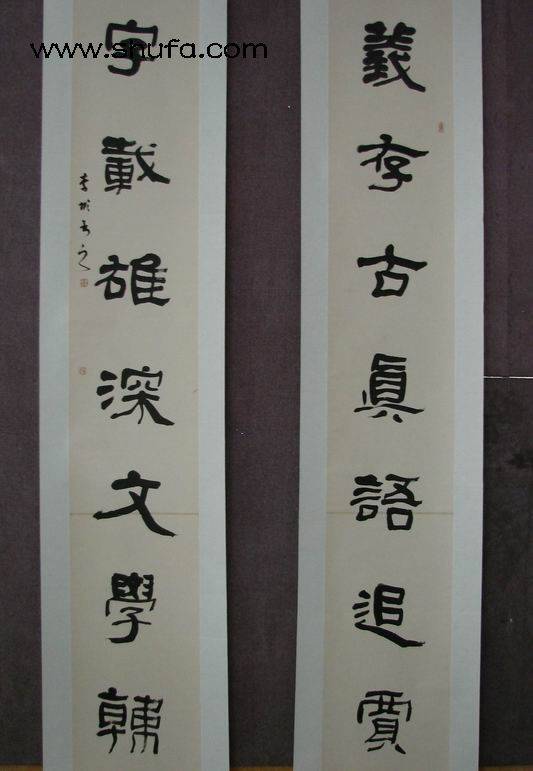 義存古真語追賈
字載雄深文學韓
www.shufa.com